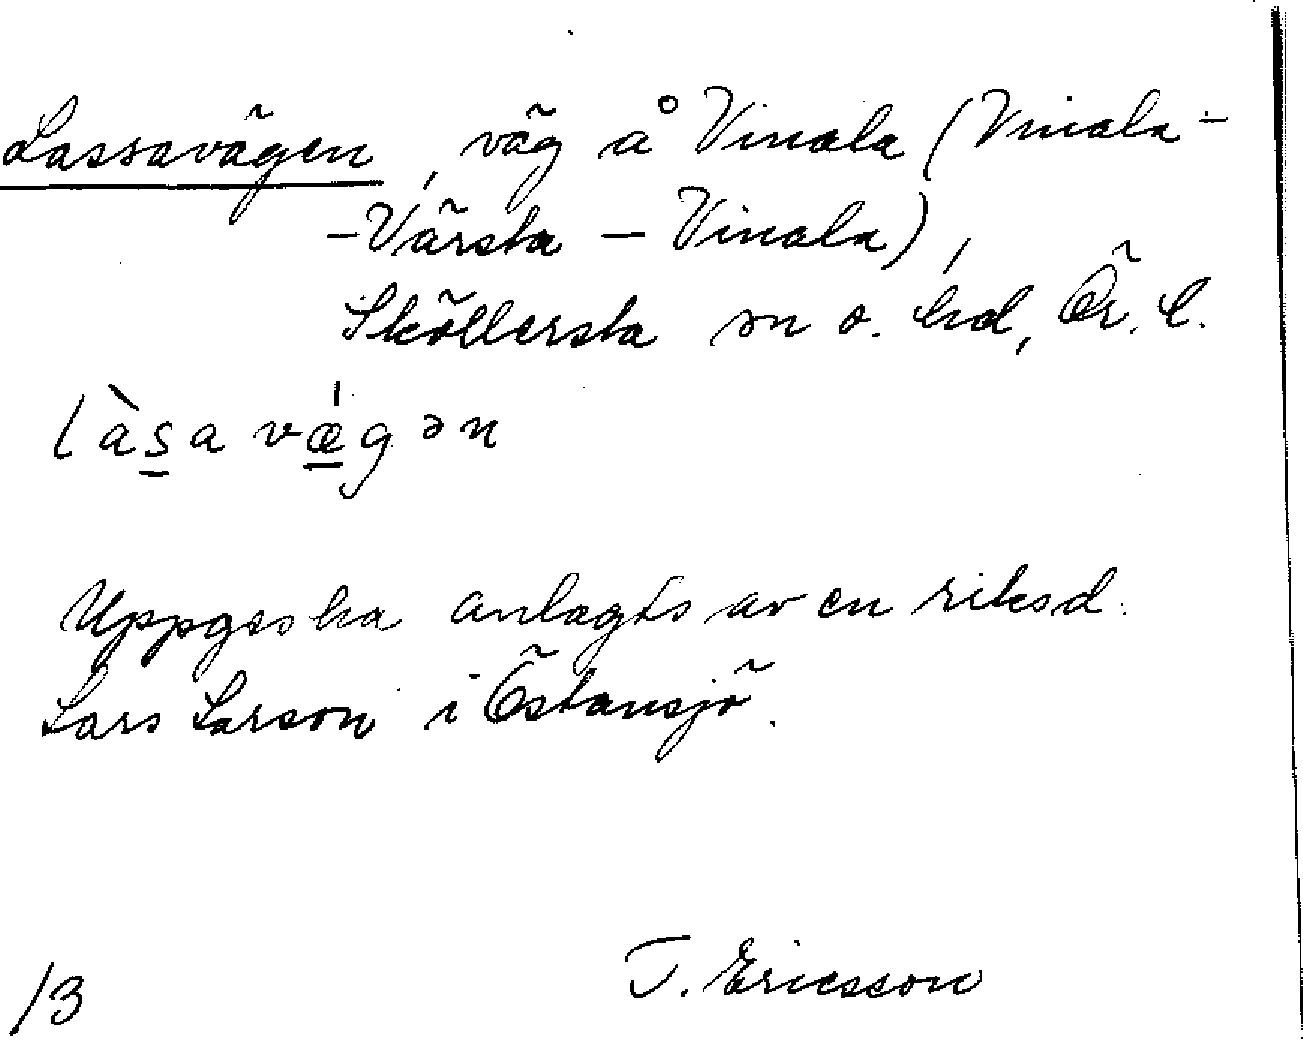 Lassavägen, väg å Vinala (Vinala-
-Värsta - Vinala),
Sköllersta sn o. hd, Ör. l.
làsa vǽgən
Uppges ha anlagts av en riksd.
Lars Larson i Östansjö.
T. Ericsson
/3